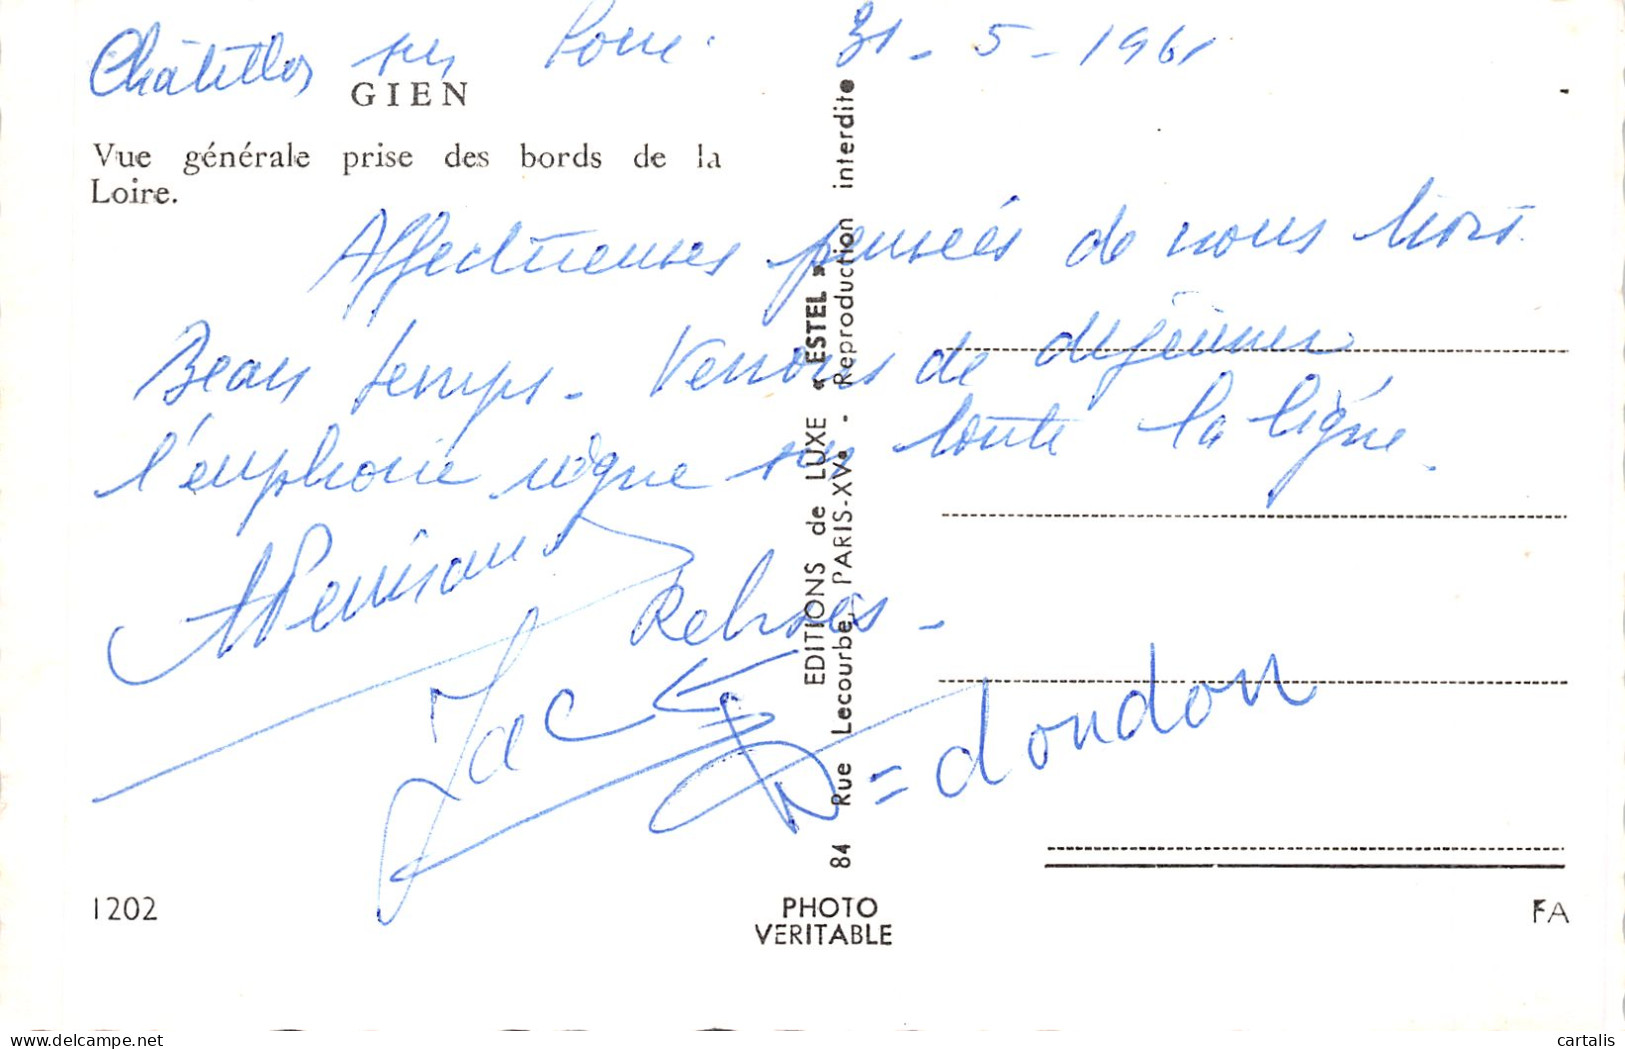 Châtillon sur Loire. 31-5-1961
GIEN
Vue générale prise des bords de la
Loire.
Affectueuses pensées de nous trois.
Beau temps - Venons de déjeuner
l'euphorie règne sur toute la ligne.
Jac
= doudon
EDITIONS de LUXE « ESTEL »
84 Rue Lecourbe, PARIS-XVe - Reproduction interdite
1202
PHOTO
VERITABLE
FA
cartalis